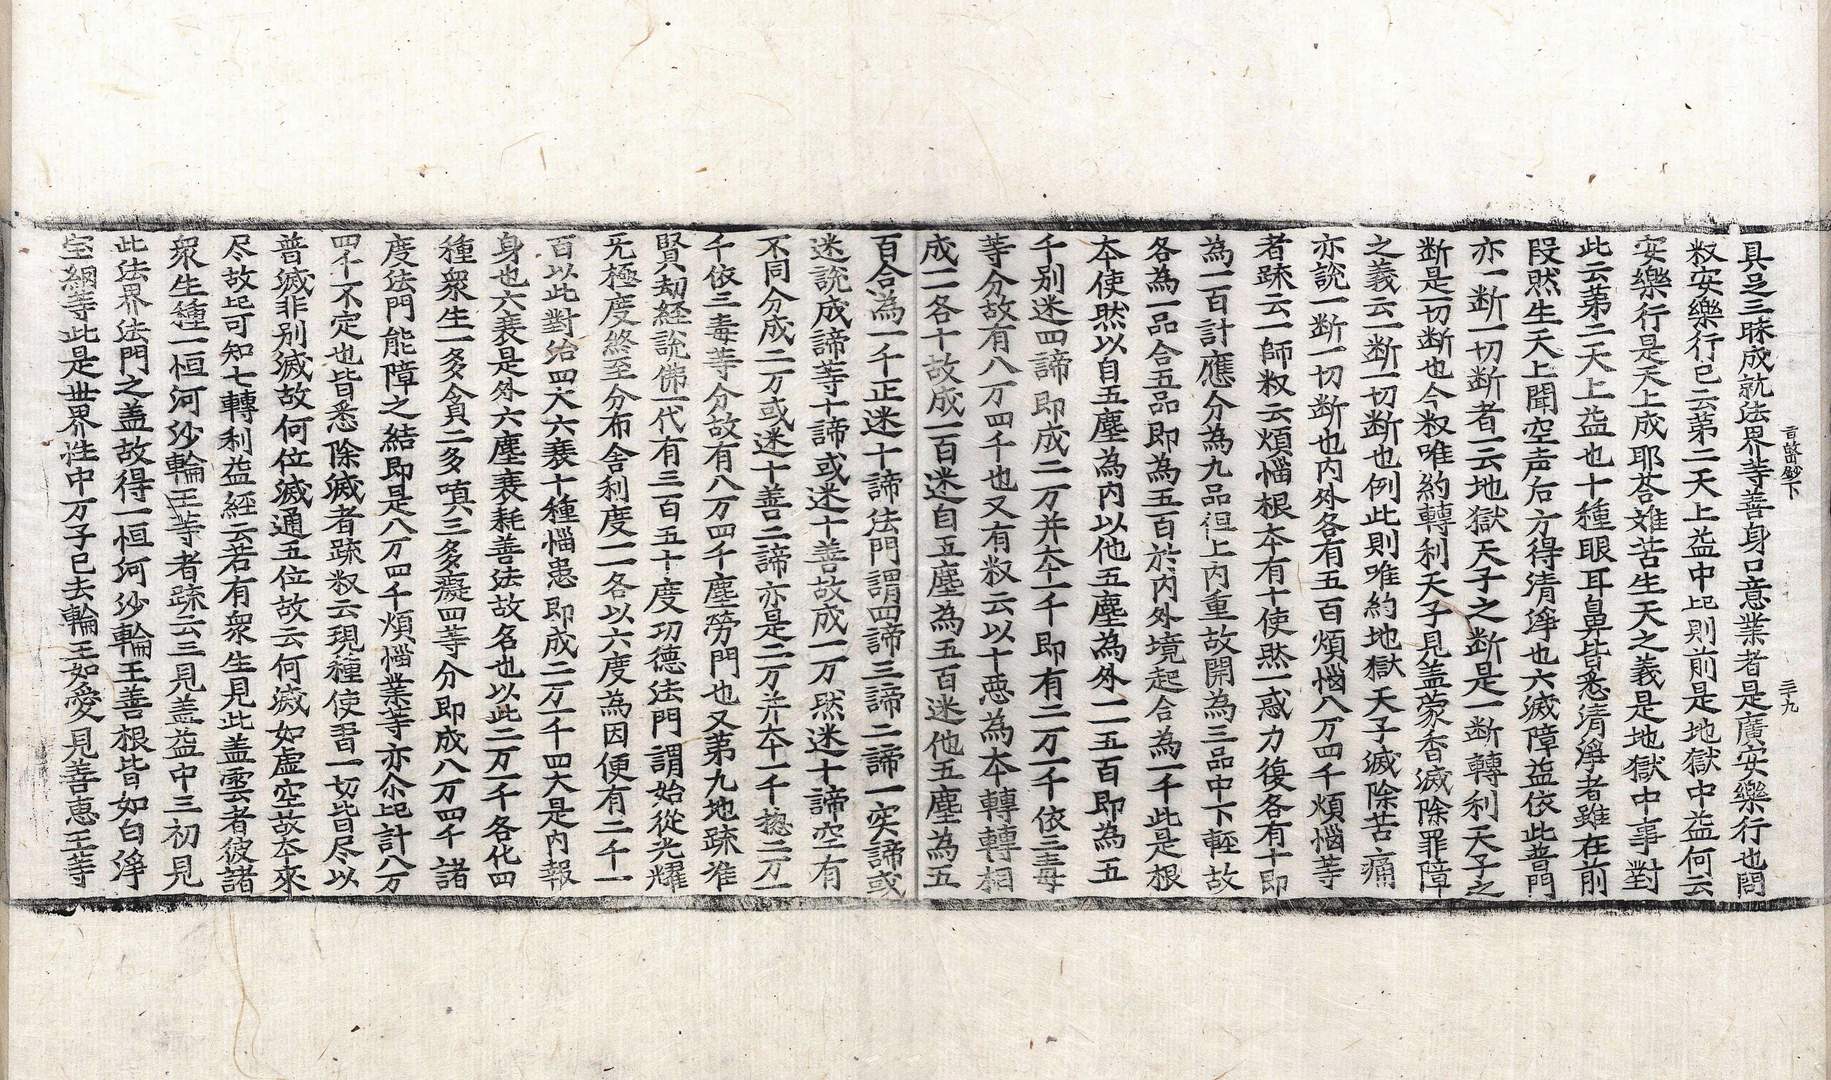 旨歸鈔下
三十九
具足三昧成就法界等善身口意業者是廣安樂行也問
叙安樂行已云第二天上益中此則前是地獄中益何云
安樂行是天上成耶答雖苦生天之義是地獄中事對
此云第二天上益也十種眼耳鼻皆悉清淨者雖在前
段然生天上聞空声后方得清淨也六滅障益依此普門
亦一断一切断者一云地獄天子之断是一断轉利天子之
断是一切断也今叙唯約轉利天子見盖蒙香滅除罪障
之義云一断一切断也例此則唯約地獄天子滅除苦痛
亦說一断一切断也内外各有五百煩惱八万四千煩惱等
者䟽云一師叙云煩惱根夲有十使然一惑力復各有十即
為一百計應分為九品但上内重故開為三品中下輕故
各為一品合五品即為五百於内外境起合為一千此是根
夲使然以自五塵為内以他五塵為外一一五百即為五
千别迷四諦即成二万并夲一千即有二万一千依三毒
等分故有八万四千也又有叙云以十惡為夲轉轉相
成一各十故成一百迷自五塵為五百迷他五塵為五
百合為一千正迷十諦法門謂四諦三諦二諦一实諦或
迷說成諦等十諦或迷十善故成一万然迷十諦空有
不同分成二万或迷十善二諦亦是二万并夲一千揔二万一
千依三毒等分故有八万四千塵勞門也又第九地䟽准
賢刼經說佛一代有三百五十度功德法門謂始從光耀
无極度終至分布舍利度一一各以六度為因便有二千一
百以此對治四大六衰十種惱患即成二万一千四大是内報
身也六衰是外六塵衰耗善法故名也以此二万一千各化四
種衆生一多貪二多嗔三多癡四等分即成八万四千諸
度法門能障之結即是八万四千煩惱業等亦尒此計八万
四千不定也皆悉除滅者䟽叙云現種使習一切皆尽以
普滅非别滅故何位滅通五位故云何滅如虚空故夲來
尽故此可知七轉利益經云若有衆生見此盖雲者彼諸
衆生種一恒河沙輪王等者䟽云三見盖益中三初見
此法界法門之盖故得一恒河沙輪王善根皆如白淨
宝網等此是世界性中万子已去輪王如愛見善惠王等